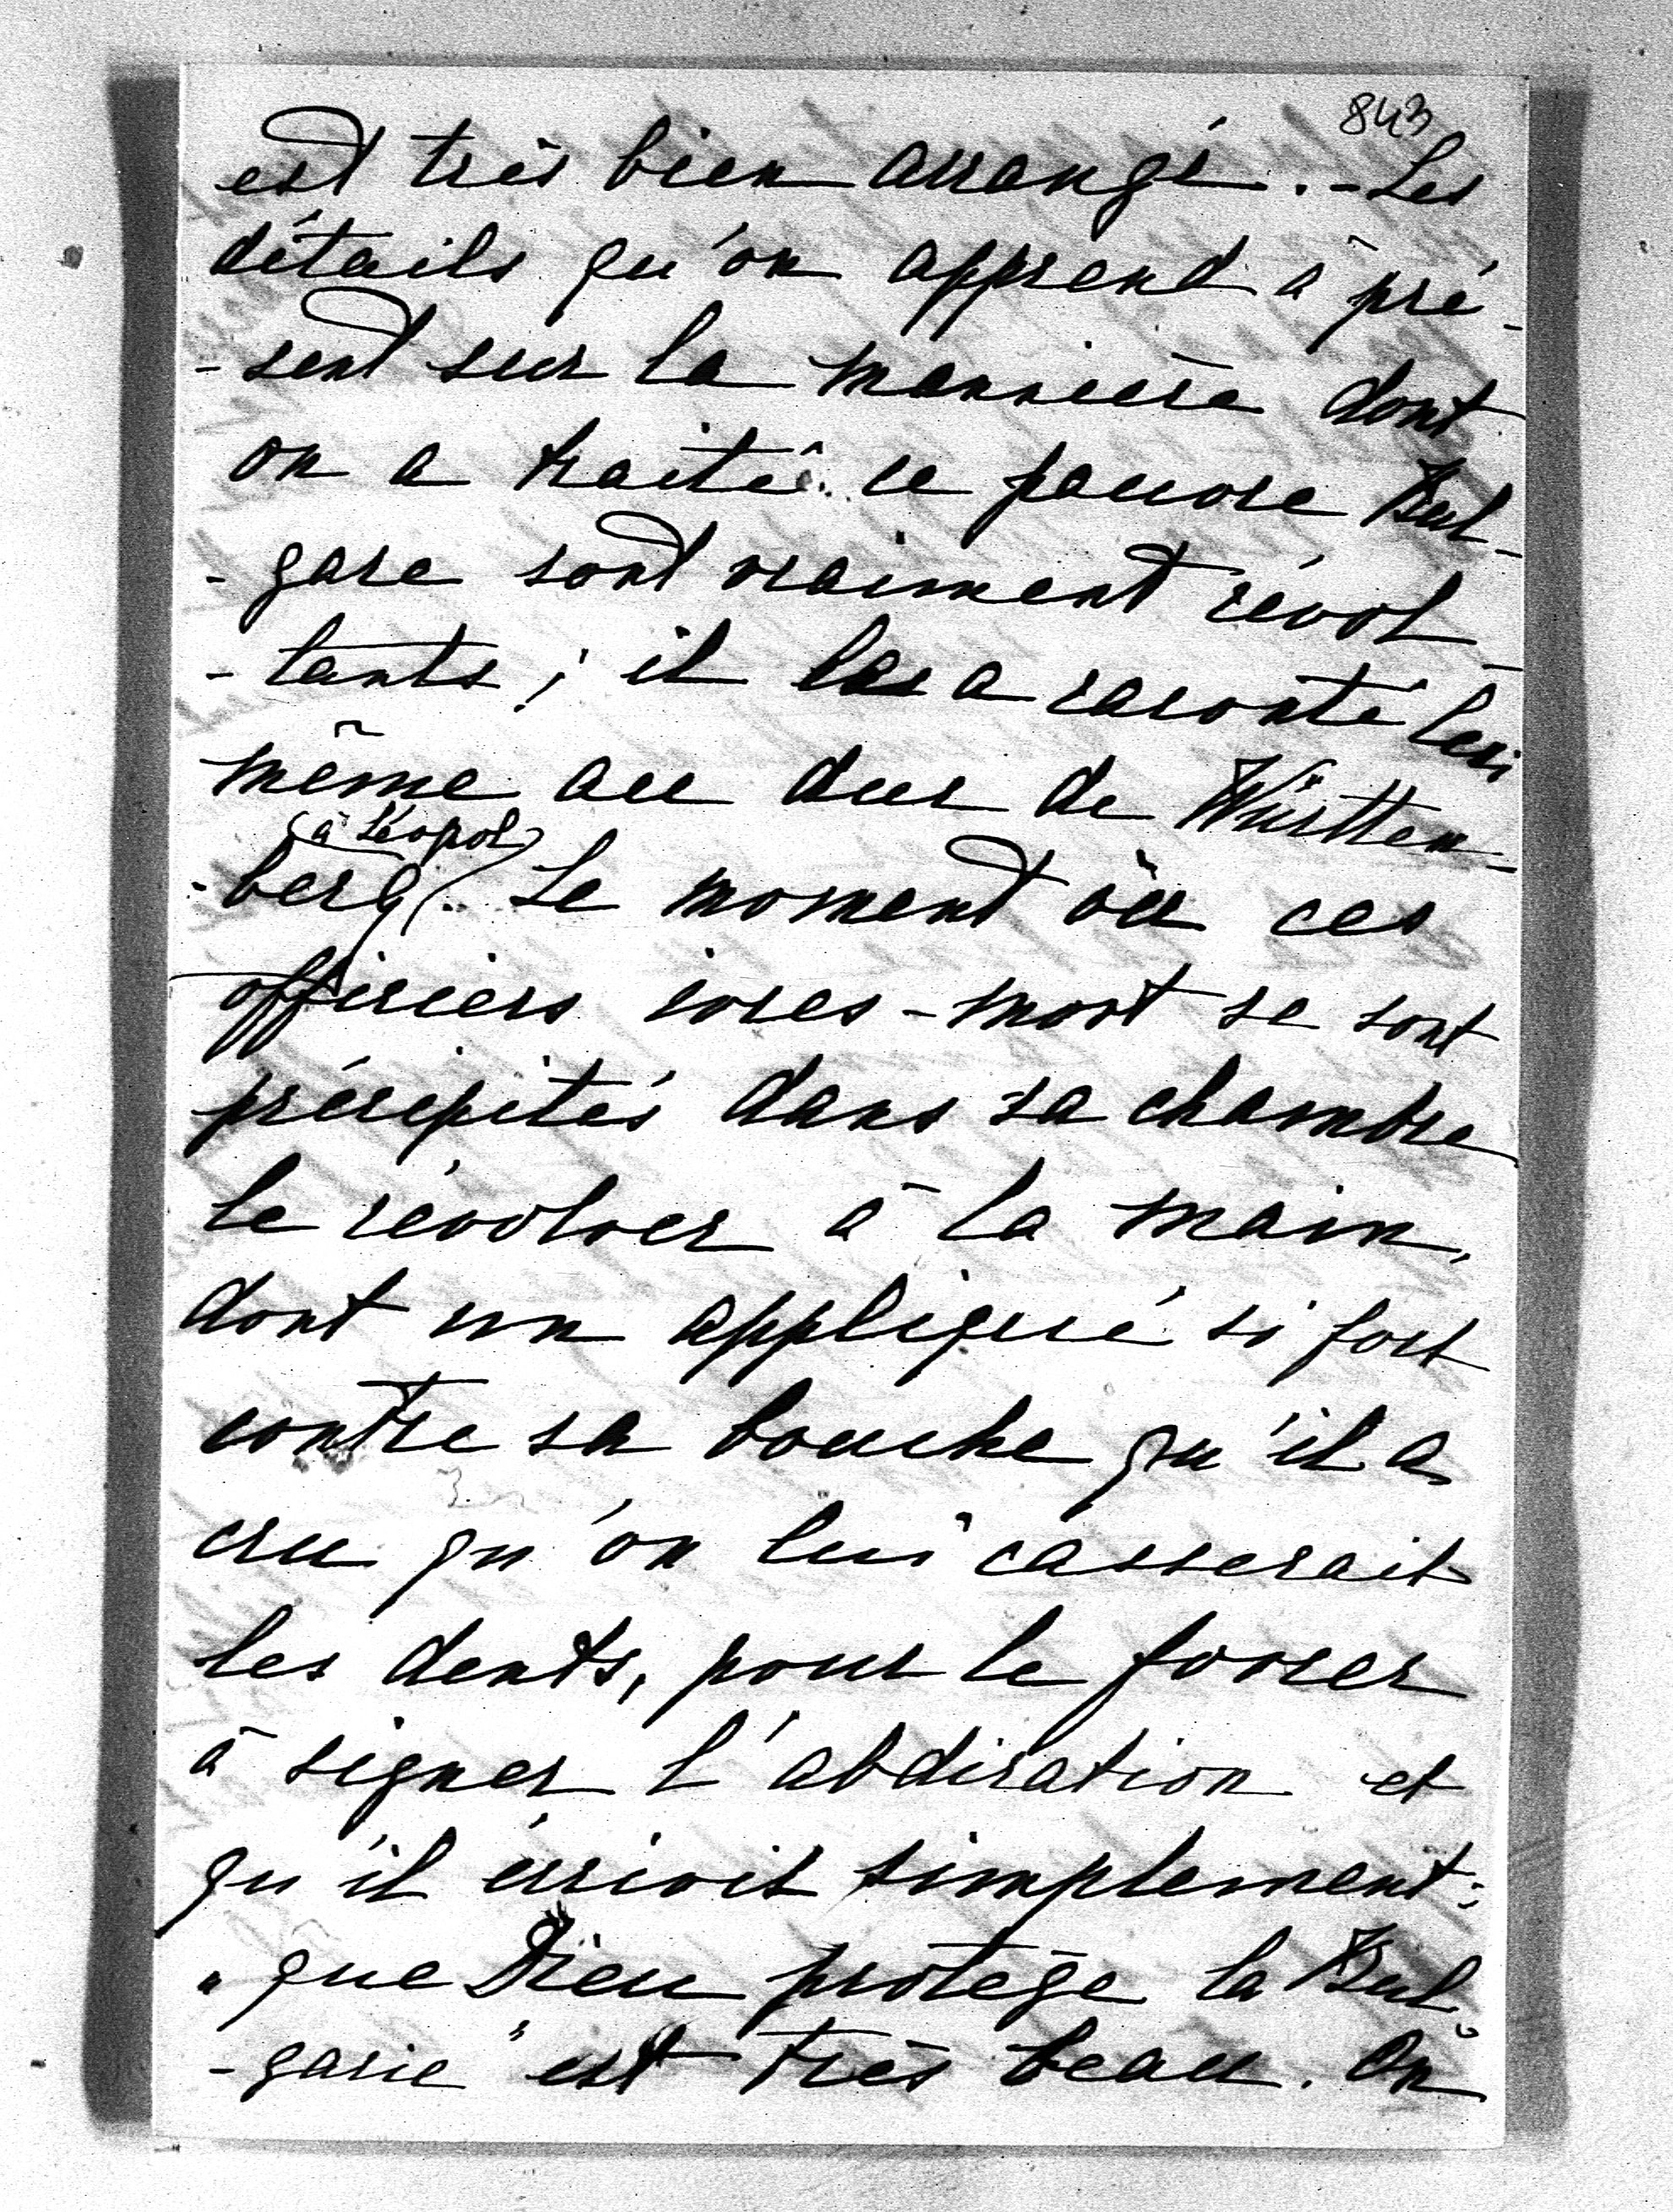 843
est très bien arrangé. - Les
détails qu'on apprend à pré-
-sent sur la mannière dont
on a traité ce pauvre Bul-
-gare sont vraiment révol-
-tants; il les a raconté lui
même au duc de Württem-
(à Léopol)
-berg. Le moment où ces
officiers ivres-mort se sont
précipités dans sa chambre
le révolver à la main,
dont un appliqué si fort
contre sa bouche qu'il a
cru qu'on lui casserait
les dents, pour le forcer
à signer l'abdication et
qu'il écrivit simplement:
"que Dieu protège la Bul-
-garie" est très beau. On